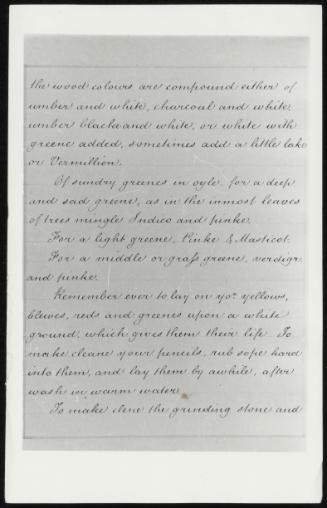 the wood colours are compound either of
umber and white, charcoal and white,
umber blacke and white, or white with
greene added, sometimes add a little lake
or Vermillion.
Of sundry greenes in oyle, for a deep
and sad greene, as in the inmost leaves
of trees mingle Indico and pinke.
For a light greene, Pinke & Masticot.
For a middle or grass greene, verdigr.
and pinke.
Remember ever to lay on yor. yellows,
blewes, reds and greenes upon a white
ground, which gives them their life. To
make cleane your pencils, rub sope hard
into them, and lay them by awhile, after
wash in warm water.
To make clene the grinding stone and